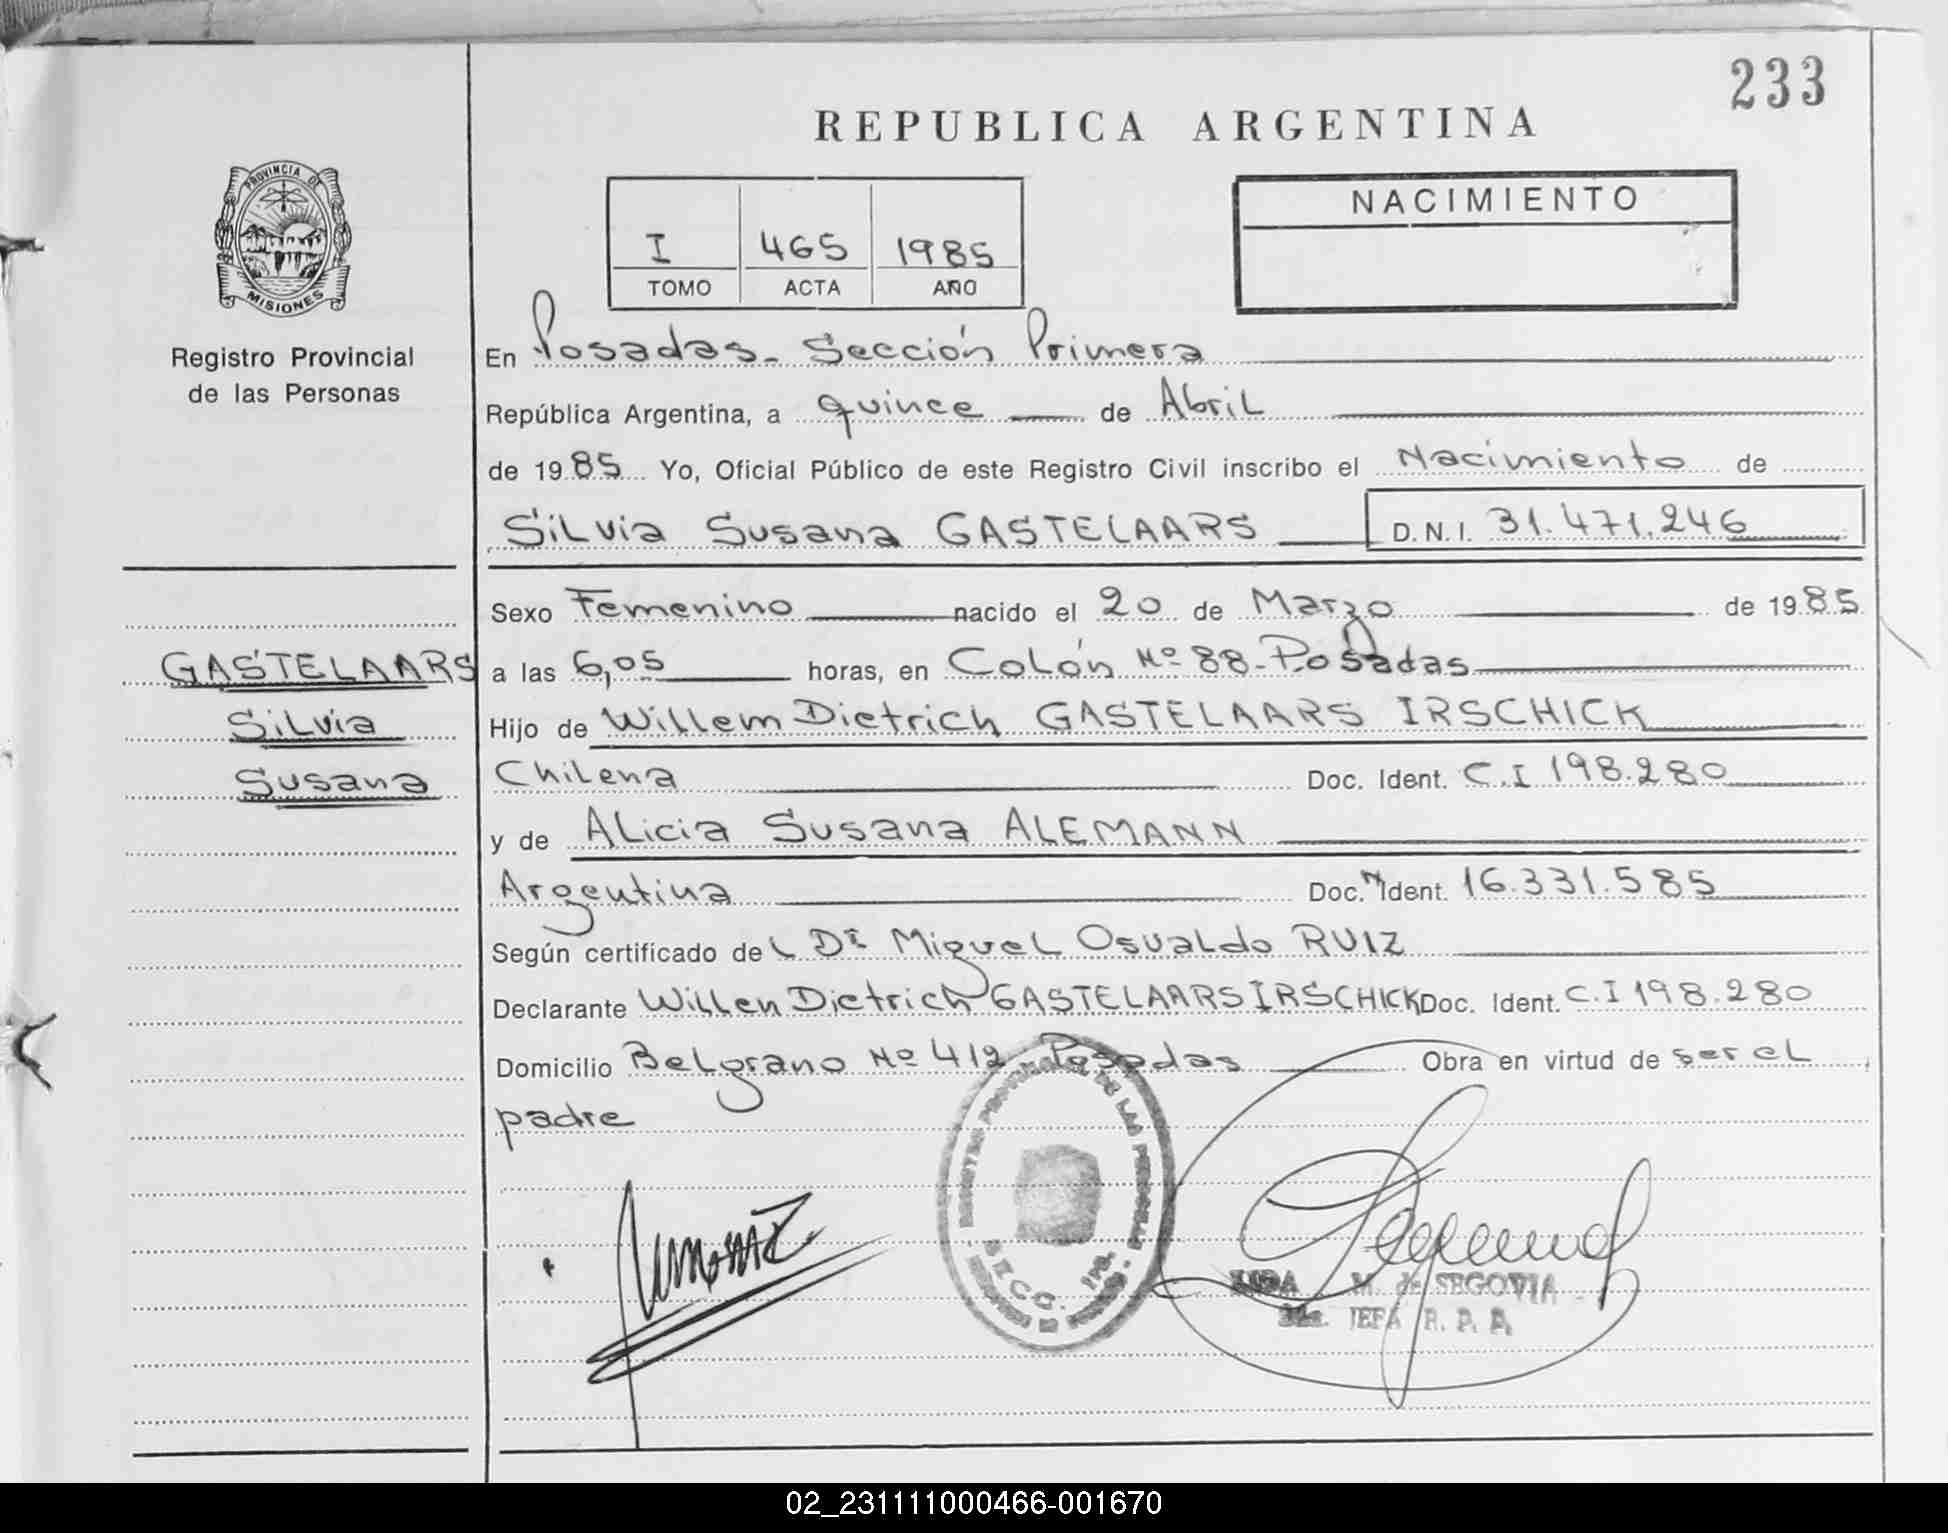 233
REPUBLICA ARGENTINA
PROVINCIA DE
MISIONES
Registro Provincial
de las Personas
I 465 1985
TOMO ACTA AÑO
NACIMIENTO
En Posadas. Sección Primera
República Argentina, a quince de Abril
de 1985 Yo, Oficial Público de este Registro Civil inscribo el Nacimiento de
Silvia Susana GASTELAARS D.N.I. 31.471.246
Sexo Femenino nacido el 20 de Marzo de 1985
GASTELAARS
Silvia
Susana
a las 6,05 horas, en Colón Nº 88-Posadas
Hijo de Willem Dietrich GASTELAARS IRSCHICK
Chilena Doc. Ident. C.I 198.280
y de ALicia Susana ALEMANN
Argentina Doc. N Ident. 16.331.585
Según certificado del Dr Miguel Osvaldo RUIZ
Declarante Willen Dietrich GASTELAARS IRSCHICK Doc. Ident. C.I 198.280
Domicilio Belgrano Nº 412 Posadas Obra en virtud de ser el
padre
REGISTRO PROVINCIAL DE LAS PERSONAS
SECC. 1ra.
M. de SEGOVIA
JEFA R. P. P.
02_231111000466-001670